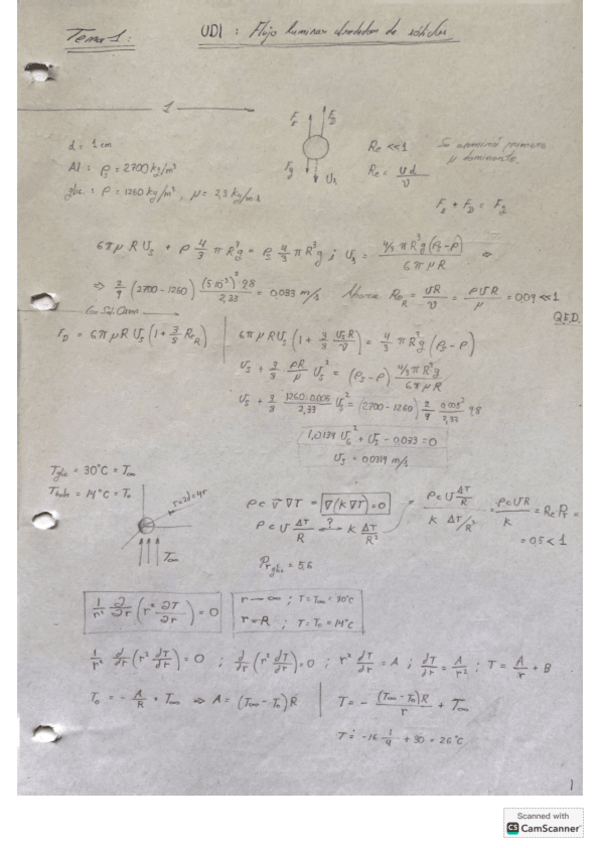 Tema 1: UD1 : Flujo laminar alrededor de sólidos
1
F_ε F_D
F_g U_s
d = 1 cm
Al : ρ_s = 2700 kg/m³
glic. : ρ = 1260 kg/m³ , μ = 2,3 kg/m·s
Re << 1
Re = Ud/ν
μ dominante.
F_ε + F_D = F_g
6πμRU_s + ρ 4/3 πR³g = ρ_s 4/3 πR³g ; U_s = 4/3 πR³g(ρ_s-ρ) / 6πμR ⇒
⇒ 2/9 (2700-1260) (5·10⁻³)² 9,8 / 2,33 = 0,033 m/s Ahora Re_R = UR/ν = ρUR/μ = 0,09 << 1
Q.E.D.
F_D = 6πμRU_s (1 + 3/8 Re_R)
6πμRU_s (1 + 3/8 U_sR/ν) = 4/3 πR³g (ρ_s-ρ)
U_s + 3/8 ρR/μ U_s² = (ρ_s-ρ) 4/3 πR³g / 6πμR
U_s + 3/8 1260·0,005/2,33 U_s² = (2700-1260) 2/9 0,005²/2,33 9,8
1,0139 U_s² + U_s - 0,033 = 0
U_s = 0,0319 m/s
T_glic = 30°C = T∞
T_bola = 14°C = T₀
r=2d=4r
T∞
ρc v̄ ∇T = ∇(k∇T) = 0
ρcU ΔT/R ? k ΔT/R²
ρcU ΔT/R / k ΔT/R² = ρcUR/k = Re Pr =
= 0,5 < 1
Pr_glic = 5,6
1/r² ∂/∂r (r² ∂T/∂r) = 0
r → ∞ ; T = T∞ = 30°C
r = R ; T = T₀ = 14°C
1/r² d/dr (r² dT/dr) = 0 ; d/dr (r² dT/dr) = 0 ; r² dT/dr = A ; dT/dr = A/r² ; T = A/r + B
T₀ = - A/R + T∞ ⇒ A = (T∞-T₀)R
T = - (T∞-T₀)R/r + T∞
T = -16 1/4 + 30 = 26°C
1
Scanned with
CS CamScanner